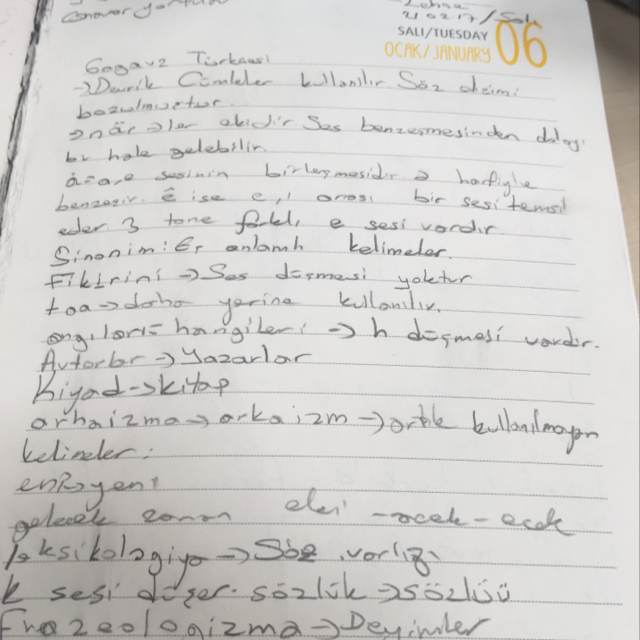 SALI/TUESDAY
OCAK/JANUARY 06
Gagavuz Türkçesi
→Devrik Cümleler kullanılır. Söz dizimi
bozulmuştur.
→när →ler ekidir Ses benzeşmesinden dolayı
bu hale gelebilir.
ä=a+e sesinin birleşmesidir ə harfiyle
benzeşir. ê ise e,i arası bir sesi temsil
eder 3 tane farklı e sesi vardır
Sinonim: Eş anlamlı kelimeler.
Fikirini → Ses düşmesi yoktur
taa → daha yerine kullanılır.
angıları = hangileri → h düşmesi vardır.
Avtorlar → Yazarlar
Kiyad → kitap
arhaizma → arkaizm → artık kullanılmayan
kelimeler.
en
gelecek zaman eki -acak -ecek
leksikologiya → Söz varlığı
k sesi düşer. sözlük → sözlüü
Frazeologizma → Deyimler